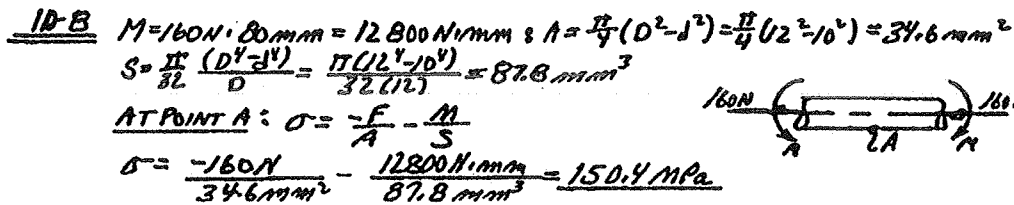 10-8 M=160N·80mm = 12800N·mm ; A = π/4 (D²-d²) = π/4 (12²-10²) = 34.6 mm²
S = π/32 (D⁴-d⁴)/D = π(12⁴-10⁴)/32(12) = 87.8 mm³
160N 160
AT POINT A : σ = -F/A - M/S
A M
σ = -160N/34.6mm² - 12800N·mm/87.8mm³ = 150.4 MPa